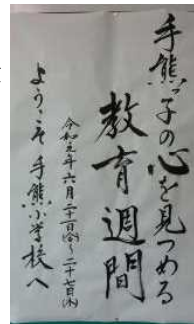 手熊っ子の心を見つめる
教育週間
令和元年六月二十一日(金)～二十七日(木)
ようこそ手熊小学校へ